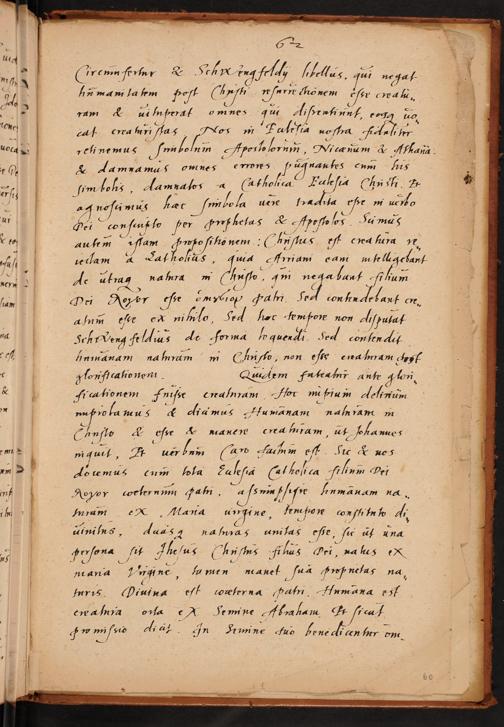 62
Circumfertur & Schwengfeldij libellus, qui negat
humanitatem post Christi resurrectionem esse creatu„
ram & uituperat omnes qui dissentiunt, eosq uo„
cat creaturistas Nos in Ecclesia nostra fideliter
retinemus Simbolum Apostolorum, Nicænum & Athana.
& damnamus omnes errores pugnantes cum his
simbolis, damnatos a Catholica Ecclesia Christi. Et
agnoscimus hæc Simbola uere tradita esse in uerbo
Dei conscripto per prophetas & Apostolos. Scimus
autem istam propositionem: Christus est creatura re„
iectam a Catholicis, quia Arriani eam intelligebant
de utraq natura in Christo, qui negabant filium
Dei λόγον esse ὁμούσιον patri. Sed contendebant cre„
atum esse ex nihilo. Sed hoc tempore non disputat
Schwengfeldius de forma loquendi. Sed contendit
humanam naturam in Christo, non esse creaturam post
glorificationem. Quidem fateatur ante glori„
ficationem fuisse creaturam. Hoc impium delirium
improbamus & dicimus Humanam naturam in
Christo & esse & manere creaturam, ut Johannes
inquit, Et uerbum Caro factum est. Sic & nos
docemus cum tota Ecclesia Catholica filium Dei
λόγον coeternum patri, assumpsisse humanam na„
turam ex Maria uirgine, tempore constituto di„
uinitus, duasq naturas unitas esse, sic ut una
persona sit Jhesus Christus filius Dei, natus ex
maria Virgine, tamen manet sua proprietas na„
turis. Diuina est coeterna patri. Humana est
creatura orta ex Semine Abraham. Et sicut
promissio dicit. In Semine tuo benedicentur om„
60